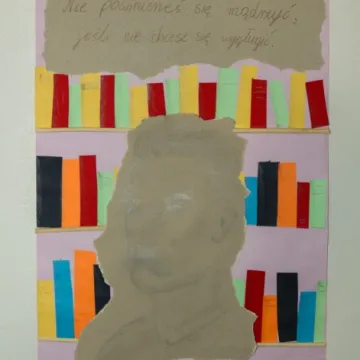 Nie powinieneś się mądrzyć,
jeśli nie chcesz się wygłupić.